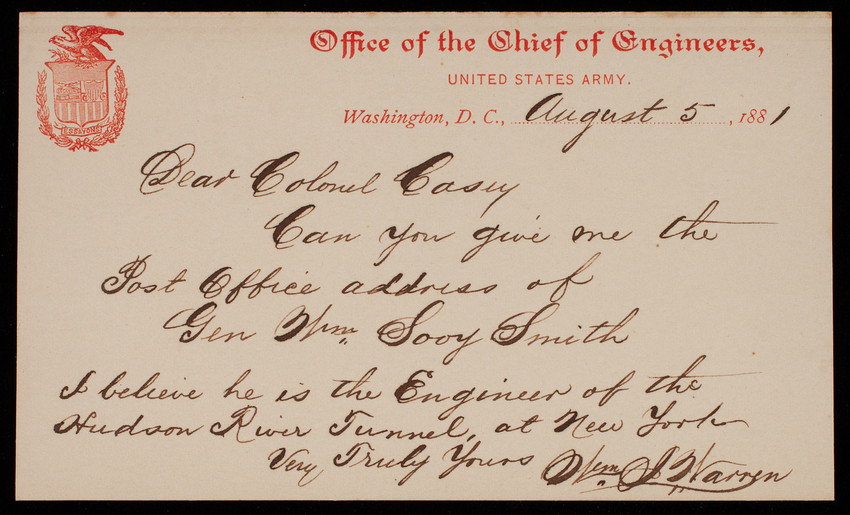 Office of the Chief of Engineers,
UNITED STATES ARMY.
Washington, D. C., August 5, 1881
ESSAYONS
Dear Colonel Casey
Can you give me the
Post Office address of
Gen Wm. Sooy Smith
I believe he is the Engineer of the
Hudson River Tunnel, at New York
Very Truly Yours Wm. J. Warren